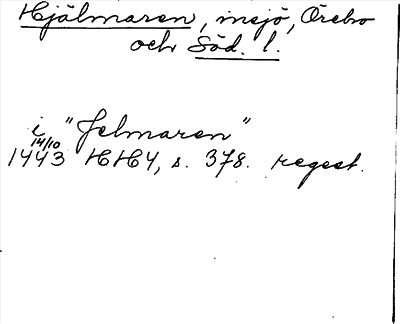 Hjälmaren, insjö, Örebro
och Söd. l.
i "Jelmaren"
14/10
1443 HH4, s. 378. regest.